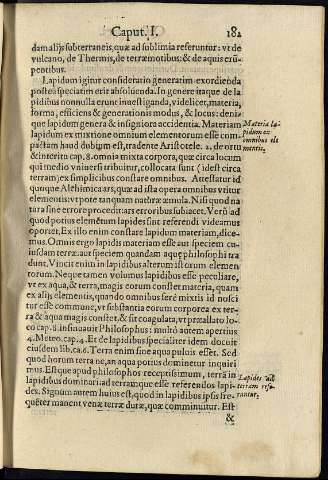 Caput. I. 182
dam alijs subterraneis, quæ ad sublimia referuntur: vt de
vulcano, de Thermis, de terræmotibus: & de aquis erũ-
pentibus.
Lapidum igitur consideratio generatim exordienda
postea speciatim erit absoluenda. In genere itaque de la
pidibus nonnulla erunt inuestiganda, videlicet, materia,
forma, efficiens & generationis modus, & locus: deni-
que lapidum genera & insigniora accidentia. Materiam
lapidum ex mixtione omnium elementorum esse com-
pactam haud dubium est, tradente Aristotele. 2. de ortu
& interitu cap. 8. omnia mixta corpora, quæ circa locum
qui medio vniuersi tribuitur, collocata sunt (idest circa
terram) ex simplicibus constare omnibus. Attestatur id
quoque Alchimica ars, quæ ad ista opera omnibus vtitur
elementis: vt pote tanquam naturæ æmula. Nisi quod na
tura sine errore procedit: ars erroribus subiacet. Verũ ad
quod potius elemẽtum lapides sint referendi videamus
oportet, Ex illo enim constare lapidum materiam, dice-
mus. Omnis ergo lapidis materiam esse aut speciem cu-
iusdam terræ: aut speciem quandam aquæ philosophi tra
dunt. Vincit enim in lapidibus alterum istorum elemen
torum. Neque tamen volumus lapidibus esse peculiare,
vt ex aqua, & terra, magis eorum constet materia, quam
ex alijs elementis, quando omnibus ferè mixtis id nosci
tur esse commune, vt substantia eorum corporea ex ter-
ra & aqua magis constet, & sit coagulata, vt præallato lo
co cap. 8. insinuauit Philosophus: multò autem apertius
4. Meteo. cap. 4. Et de lapidibus specialiter idem docuit
eiusdem lib. ca. 6. Terra enim sine aqua puluis esset. Sed
quod horum terra ne, an aqua potius dominetur inquiri
mus. Estque apud philosophos receptissimum, terrã in
lapidibus dominari: ad terramque esse referendos lapi-
des. Signum autem huius est, quod in lapidibus ipsis fre-
quẽter manent venæ terræ duræ, quæ comminuitur. Est
&
Materia la-
pidum ex
omnibus ele
mentis.
Lapides ad
terram refe-
runtur.